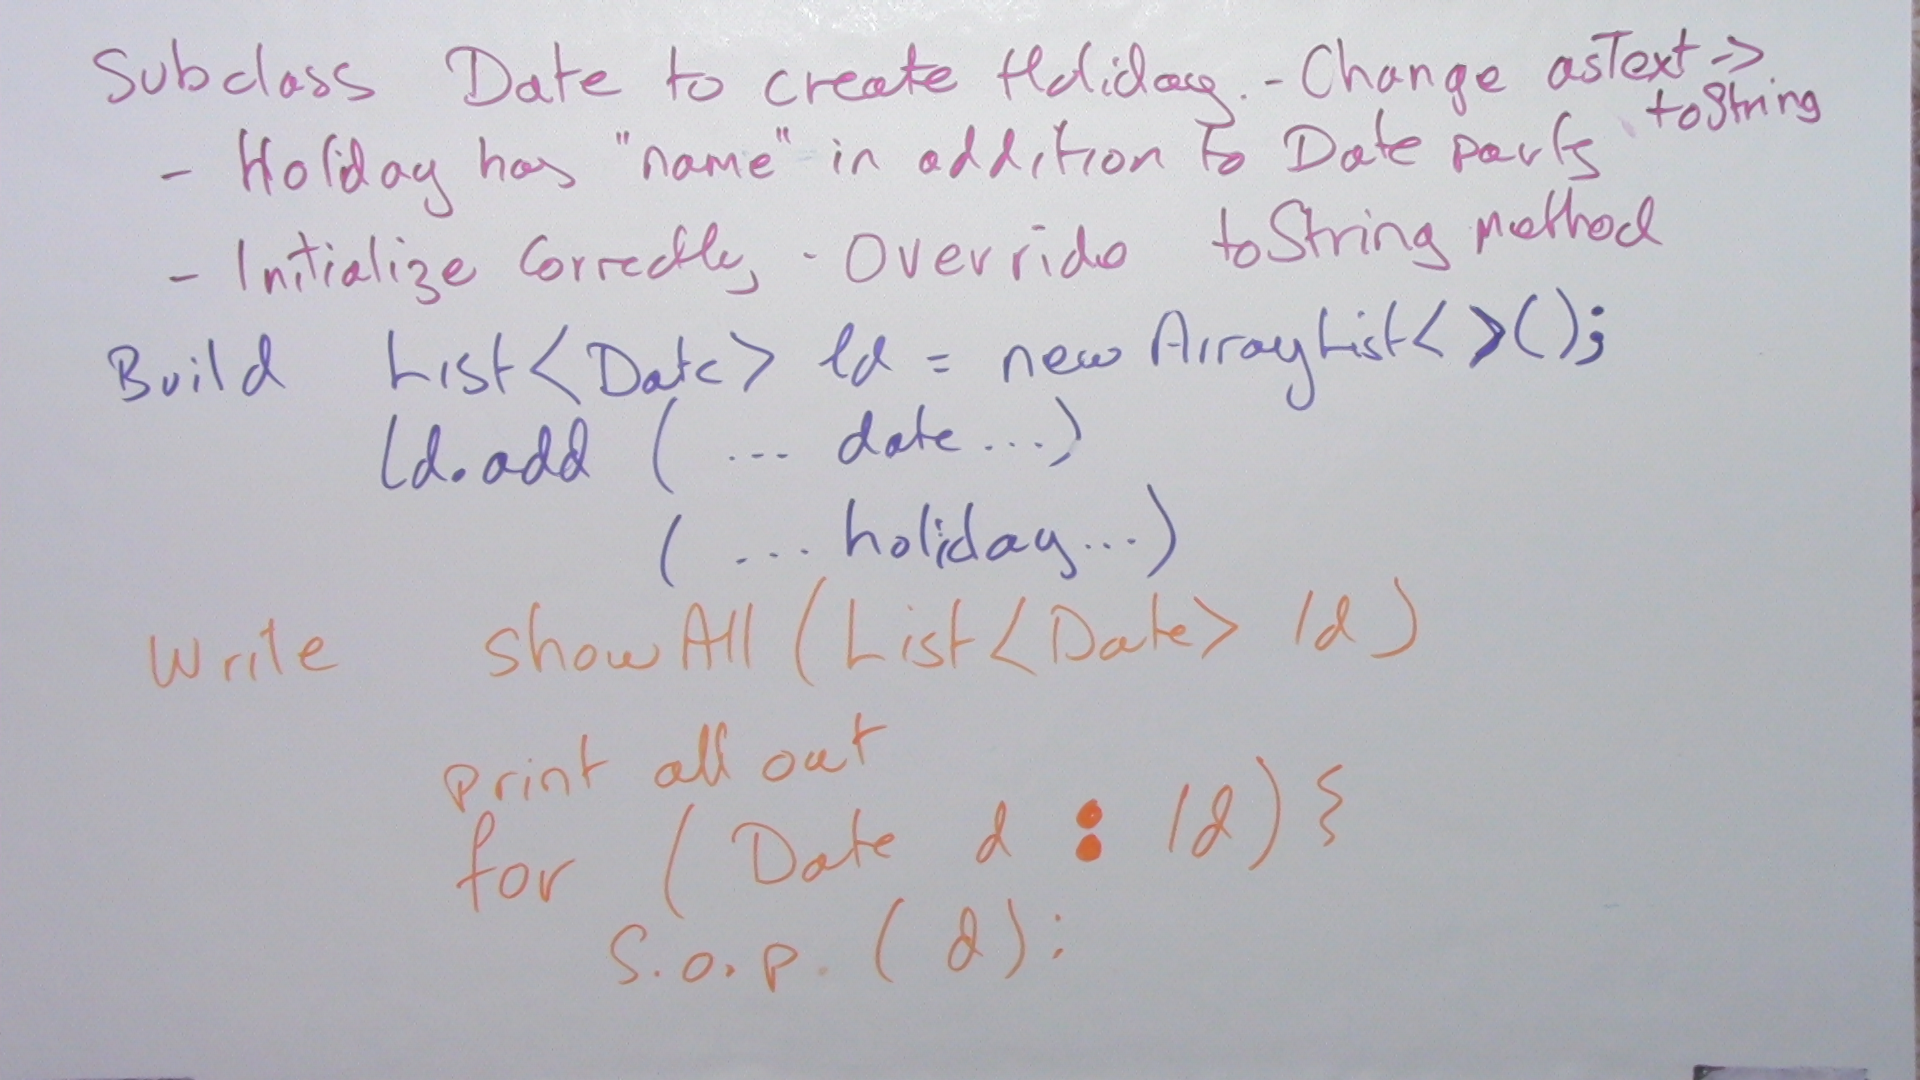 Subclass Date to create Holiday. - Change asText ->
toString
- Holiday has "name" in addition to Date parts
- Initialize Correctly, - Override toString method
Build List<Date> ld = new ArrayList<>();
ld.add ( ... date ... )
( ... holiday ... )
Write showAll (List<Date> ld )
print all out
for ( Date d : ld) {
S.o.p. ( d );